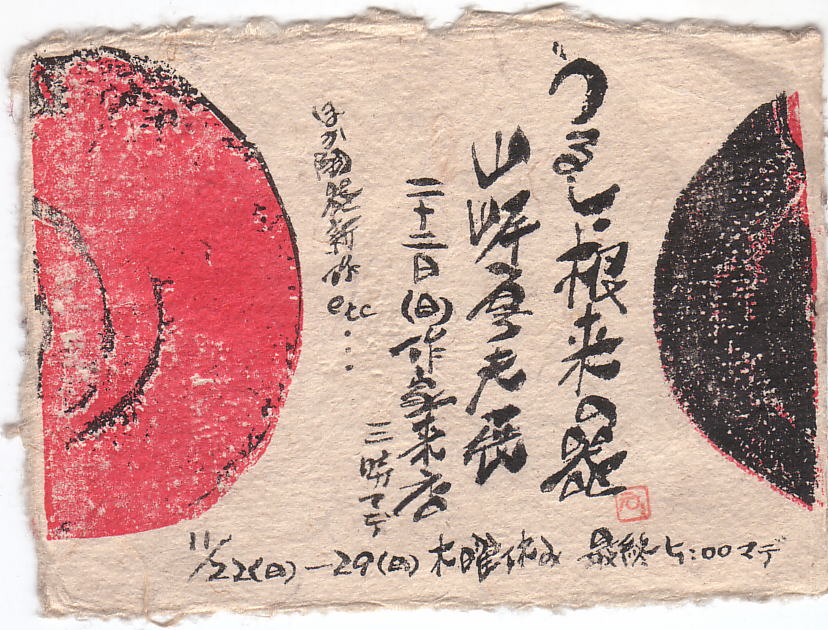 うるし・根来の器
山岸厚夫展
二十二日(日)作家来店
三時マデ
ほか新作etc...
11/22(日)—29(日) 木曜休み 最終5:00マデ